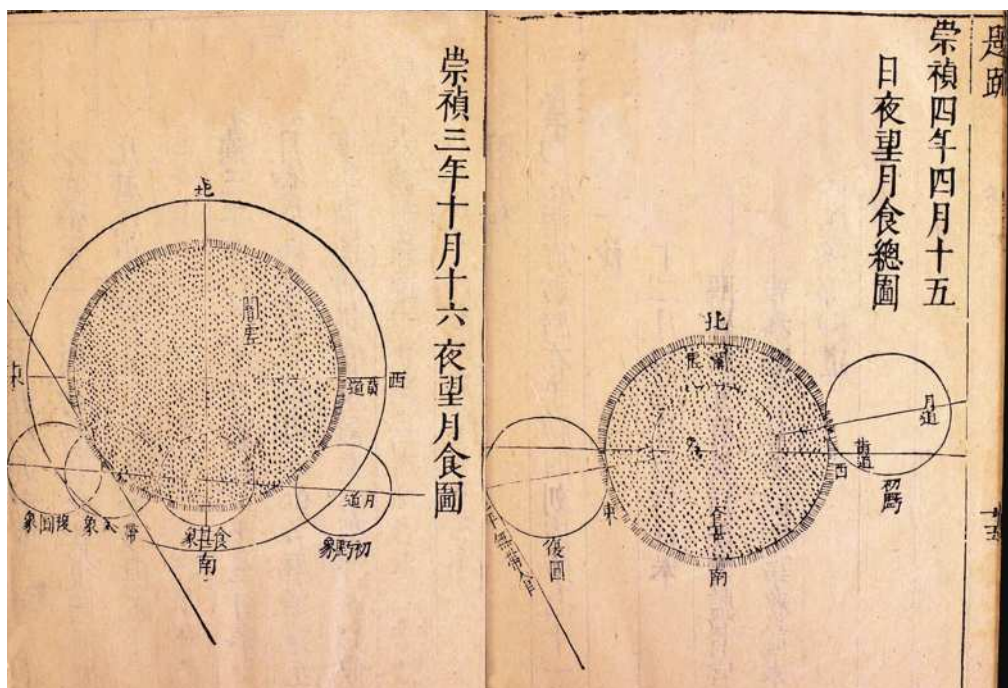 崇禎四年四月十五
日夜望月食總圖
北
月道
黃道
西
初虧
食甚
南
東
復圓
崇禎三年十月十六夜望月食圖
北
闇虛
西
黃道
東
月道
初虧象
食甚象
南
復圓象